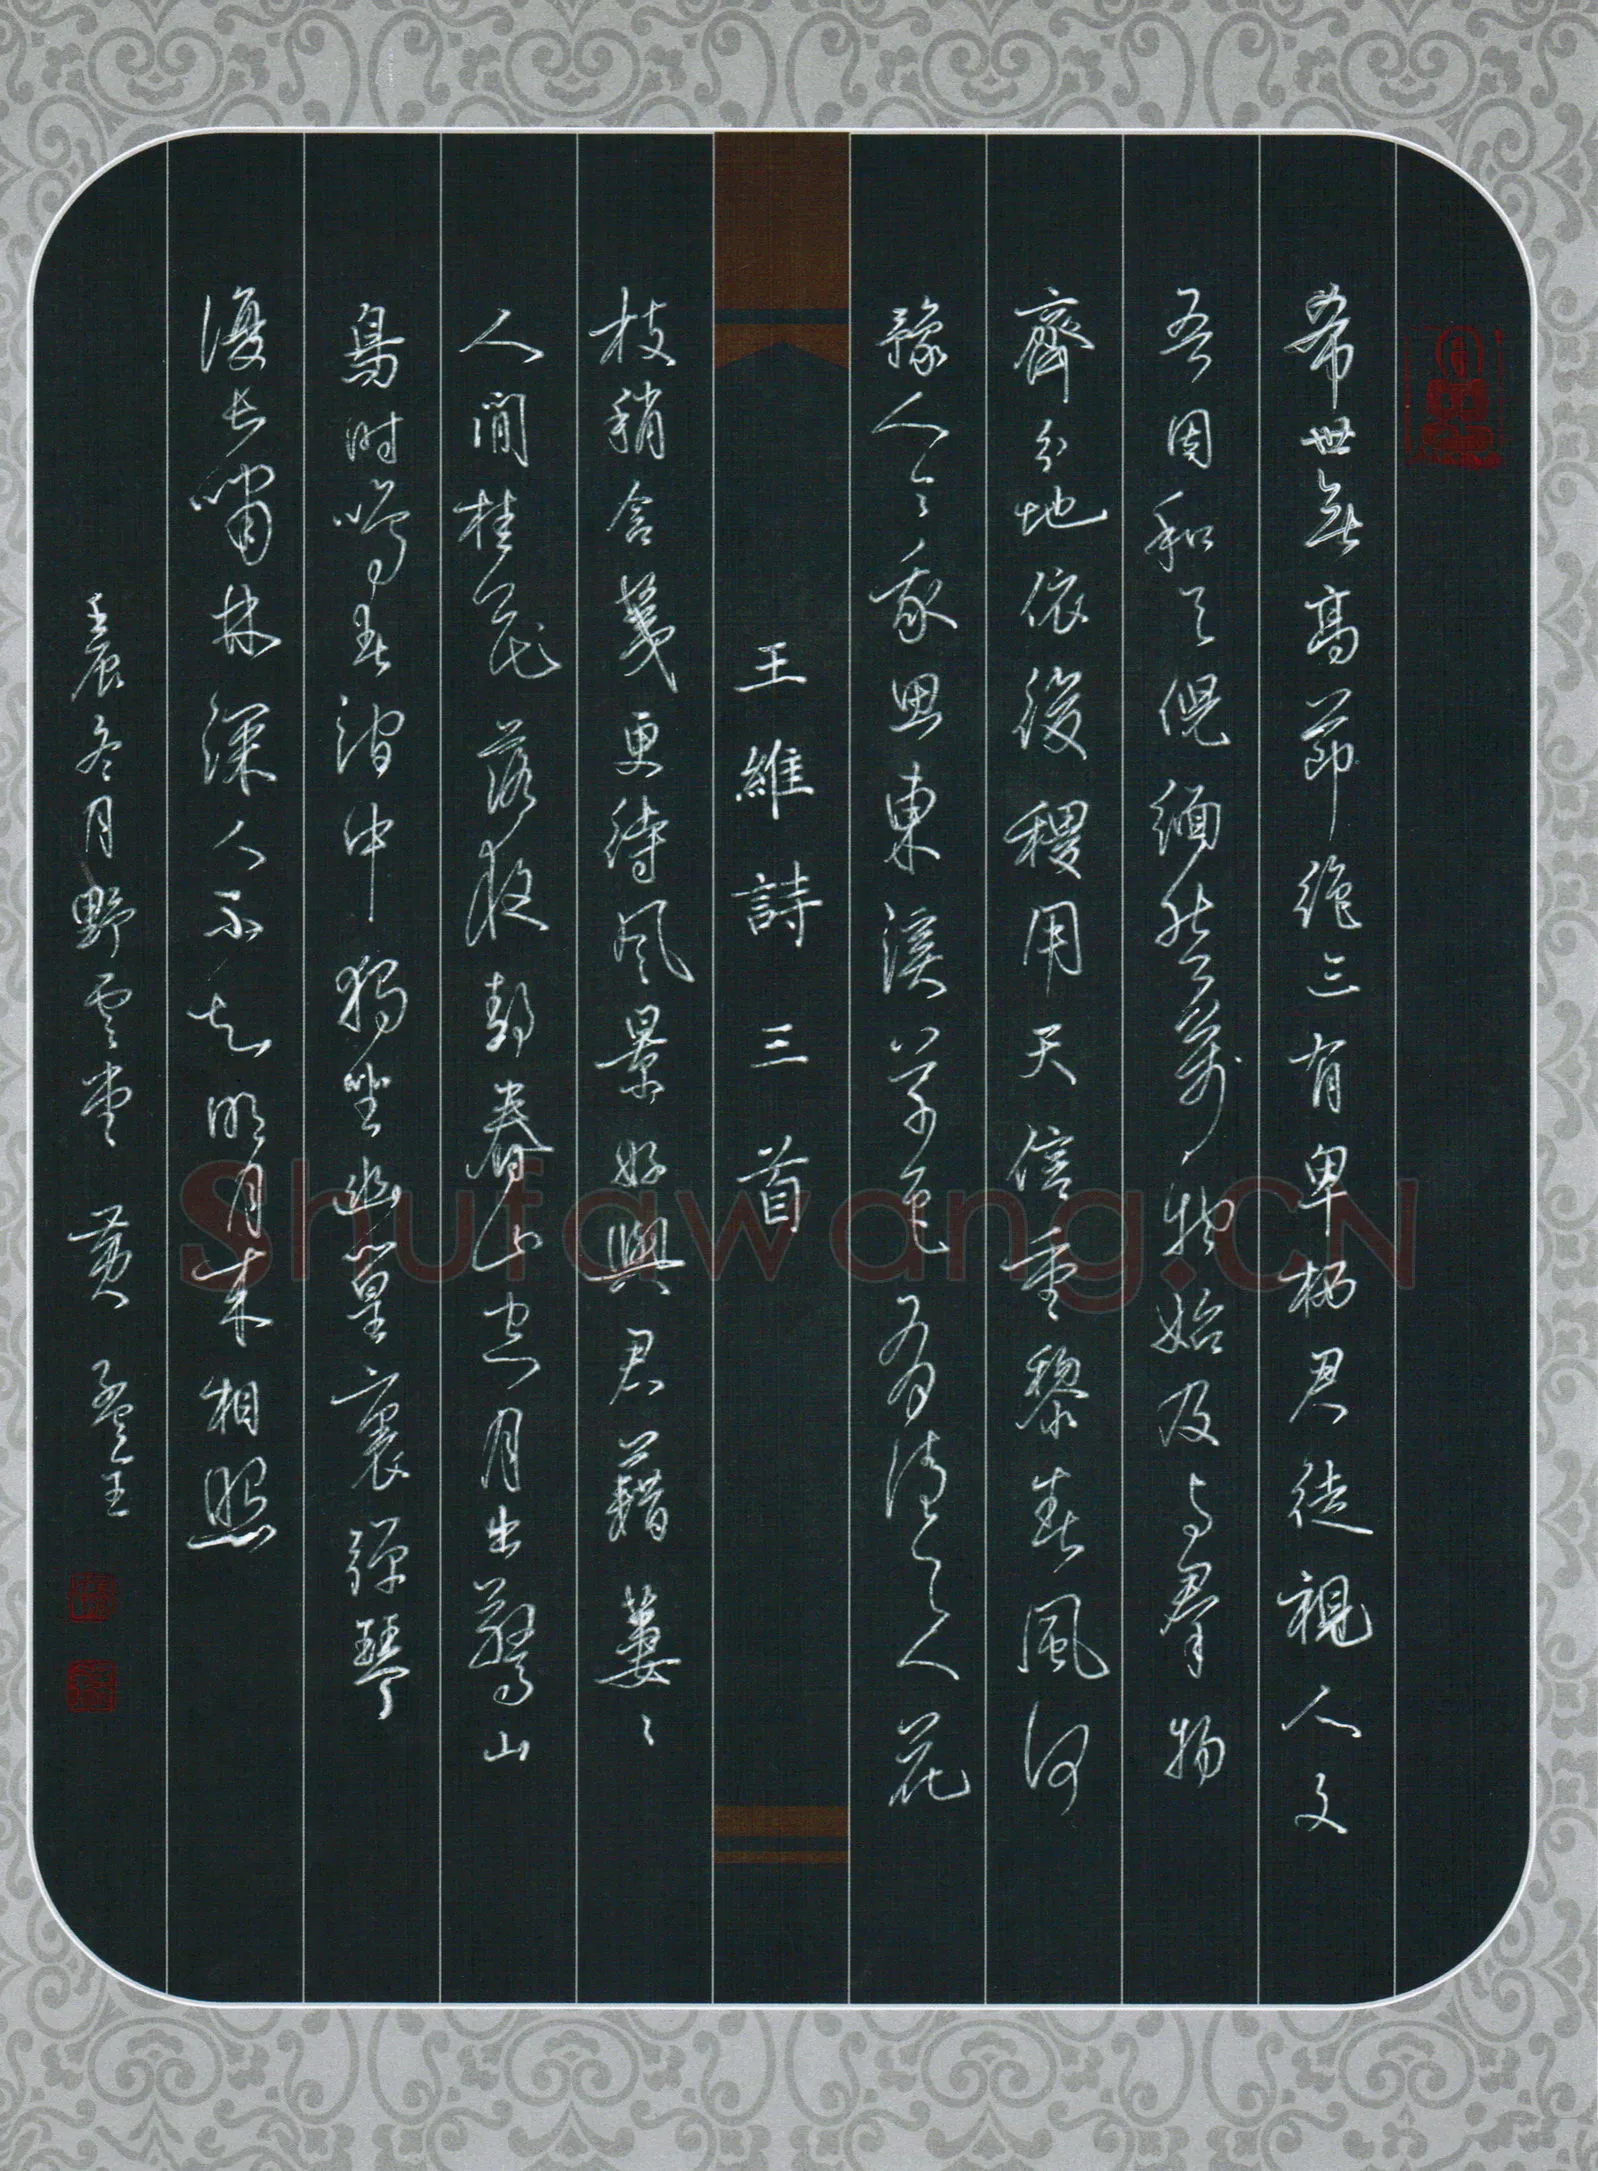 希世無高節絶三有卑栖君徒視人文
吾固和天倪緬然萬物始及与羣物
齊分地依後稷用天信重黎春風何
豫人令我思東溪草色有花
王維詩三首
枝稍含荑更待风景好與君藉萋〻
人閒桂花落夜静春山空月出驚山
鳥时鳴春澗中獨坐幽篁裏彈琴
復長嘯林深人不知明月来相照
壬辰冬月野雲堂 黄孟玉
Shufawang.CN